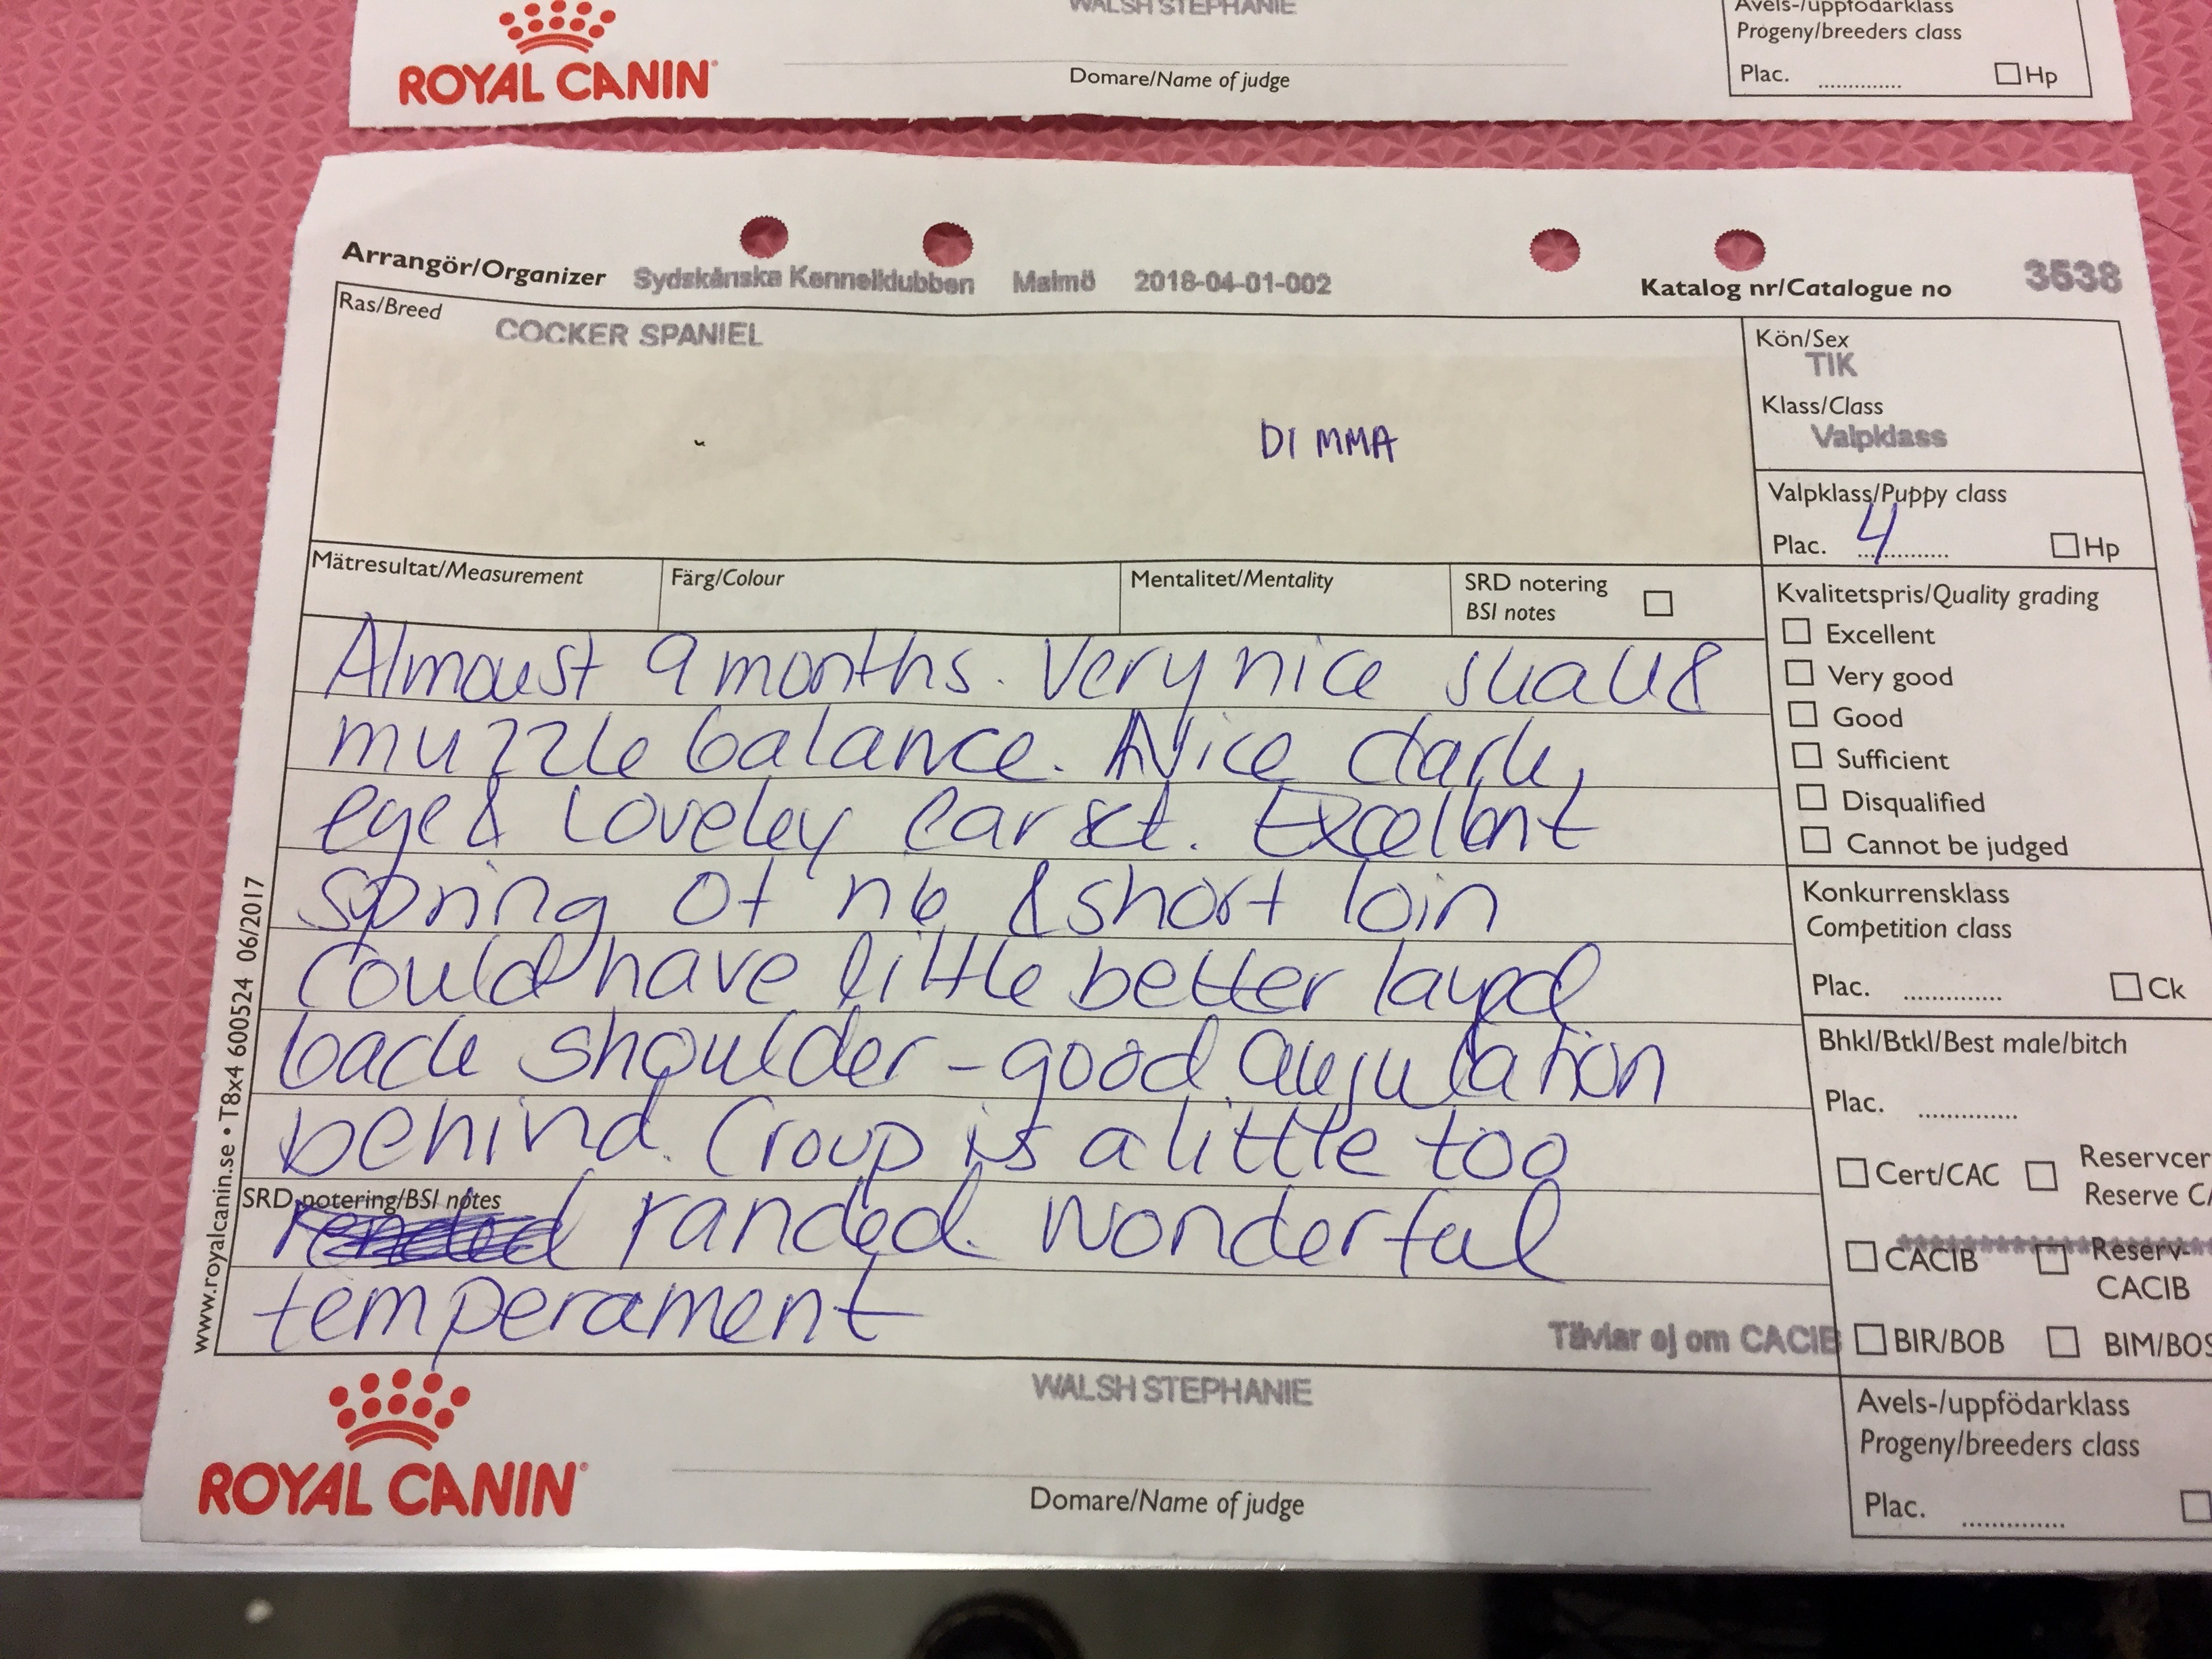 WALSH STEPHANIE
ROYAL CANIN
Domare/Name of judge
Avels-/uppfödarklass
Progeny/breeders class
Plac. .............. Hp
Arrangör/Organizer Sydskånska Kennelklubben Malmö 2018-04-01-002
Katalog nr/Catalogue no 3538
Ras/Breed
COCKER SPANIEL
DIMMA
Kön/Sex
TIK
Klass/Class
Valpklass
Valpklass/Puppy class
Plac. 4 Hp
Mätresultat/Measurement
Färg/Colour
Mentalitet/Mentality
SRD notering
BSI notes
Almoust 9 months. Very nice skull &
muzzle balance. Nice dark
eye & Loveley ear set. Excellent
spring of rib & short loin
could have little better layed
back shoulder - good angulation
behind. Croup is a little too
randed. Wonderful
temperament
SRD notering/BSI notes
Kvalitetspris/Quality grading
Excellent
Very good
Good
Sufficient
Disqualified
Cannot be judged
Konkurrensklass
Competition class
Plac. .............. Ck
Bhkl/Btkl/Best male/bitch
Plac. ..............
Cert/CAC
Reservcer
Reserve CA
CACIB
Reserv-
CACIB
Tävlar ej om CACIB
BIR/BOB
BIM/BOS
Avels-/uppfödarklass
Progeny/breeders class
Plac. ..............
www.royalcanin.se • T8x4 600524 06/2017
WALSH STEPHANIE
ROYAL CANIN
Domare/Name of judge